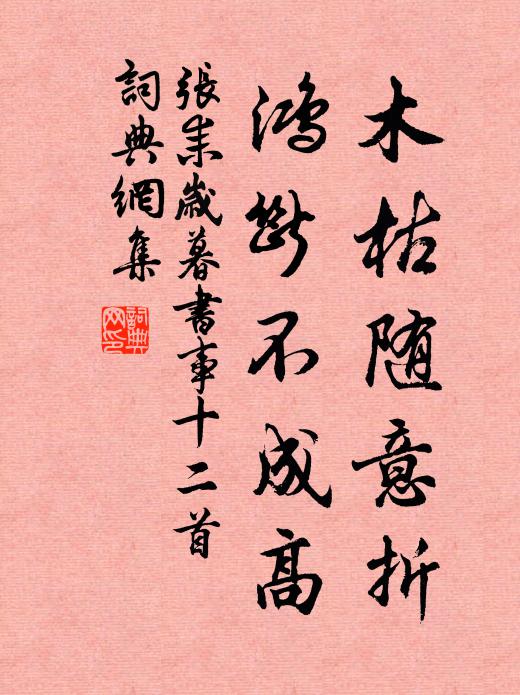 木枯随意折
鴻斷不成高
張耒歲暮書事十二首
詞典網集
詞典网印